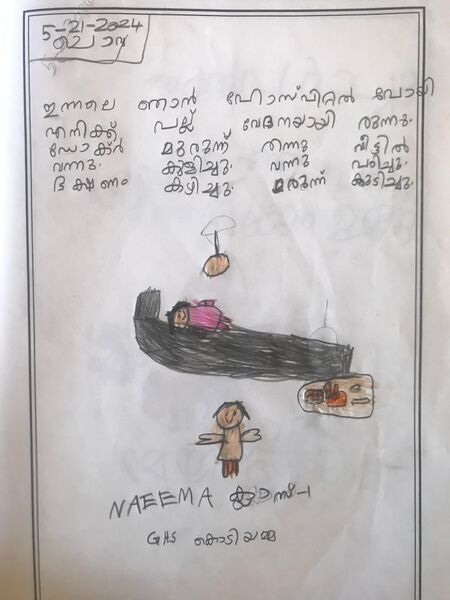 5-21-2024
ചൊവ്വ
ഇന്നലെ ഞാൻ ഹോസ്പിറ്റൽ പോയി
എനിക്ക് പല്ല് വേദനയായി രുന്നു.
ഡോക്ടർ മുരുന്ന് തന്നു വീട്ടിൽ
വന്നു. കുളിച്ചു. വന്നു പഠിച്ചു.
ഭക്ഷണം കഴിച്ചു. മരുന്ന് കുടിച്ചു.
NAEEMA ക്ലാസ്-1
GHS കൊടിയമ്മ